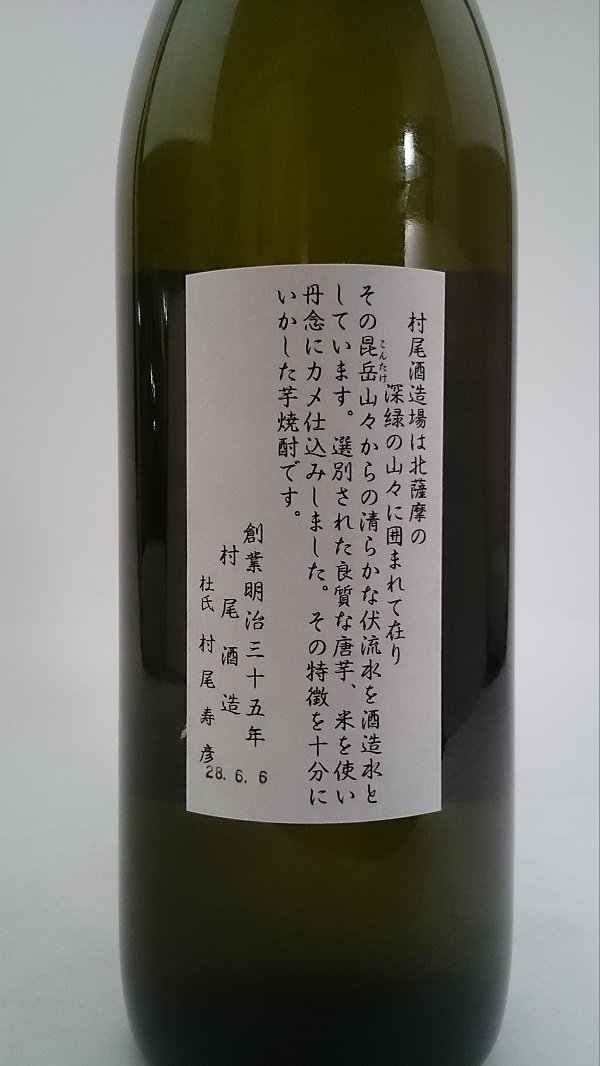 村尾酒造場は北薩摩の
深緑の山々に囲まれて在り
その昆岳山々からの清らかな伏流水を酒造水と
こんたけ
しています。選別された良質な唐芋、米を使い
丹念にカメ仕込みしました。その特徴を十分に
いかした芋焼酎です。
創業明治三十五年
村尾酒造
杜氏 村尾寿彦
28.6.6